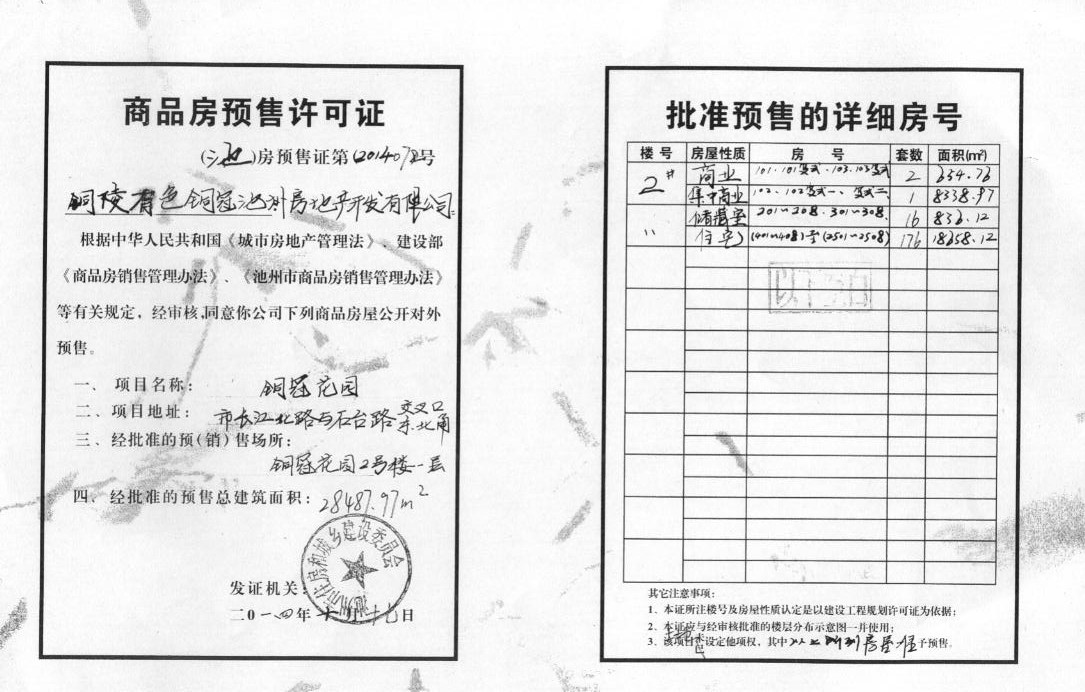 商品房预售许可证
(池)房预售证第(2014072号
铜陵有色铜冠池州房地产开发有限公司:
根据中华人民共和国《城市房地产管理法》、建设部
《商品房销售管理办法》、《池州市商品房销售管理办法》
等有关规定，经审核,同意你公司下列商品房屋公开对外
预售。
一、项目名称： 铜冠花园
二、项目地址： 市长江北路与石台路交叉口东北角
三、经批准的预(销)售场所：
铜冠花园2号楼一层
四、经批准的预售总建筑面积：28487.97m²
池州市住房和城乡建设委员会
发证机关：
二0一四年十月十七日
批准预售的详细房号
楼号 房屋性质 房 号 套数 面积(m²)
2# 商业 101.101复式.103.103复式 2 654.76
集中商业 102.102复式一、复式二 1 8338.97
储藏室 201~208.301~308. 16 836.12
〃 住宅 (401~408)至(2501~2508) 176 18658.12
以下空白
其它注意事项：
1、本证所注楼号及房屋性质认定是以建设工程规划许可证为依据；
2、本证应与经审核批准的楼层分布示意图一并使用；
3、该项目已设定他项权，其中 房屋准予预售。